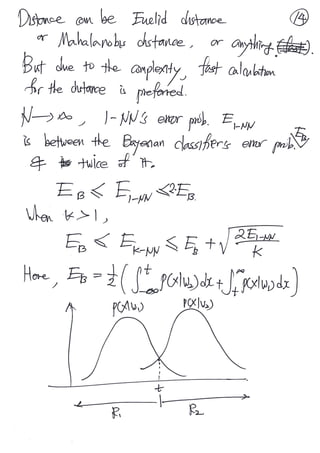 14
Distance can be Euclid distance
or Mahalanobis distance, or anything
But due to the complexity, fast calculation
for the distance is preferred.
N→∞, 1-NN's error prob. E₁₋NN
is between the Bayesian classifier's error prob. E_B
& twice of it.
E_B ≤ E₁₋NN ≤ 2E_B
When k>1,
E_B ≤ E_k-NN ≤ E_B + √(2E₁₋NN / k)
Here, E_B = 1/2 ( ∫_{-∞}^{t} p(x|w₂)dx + ∫_{t}^{∞} p(x|w₁)dx )
p(x|w₁) p(x|w₂)
t
R₁ R₂